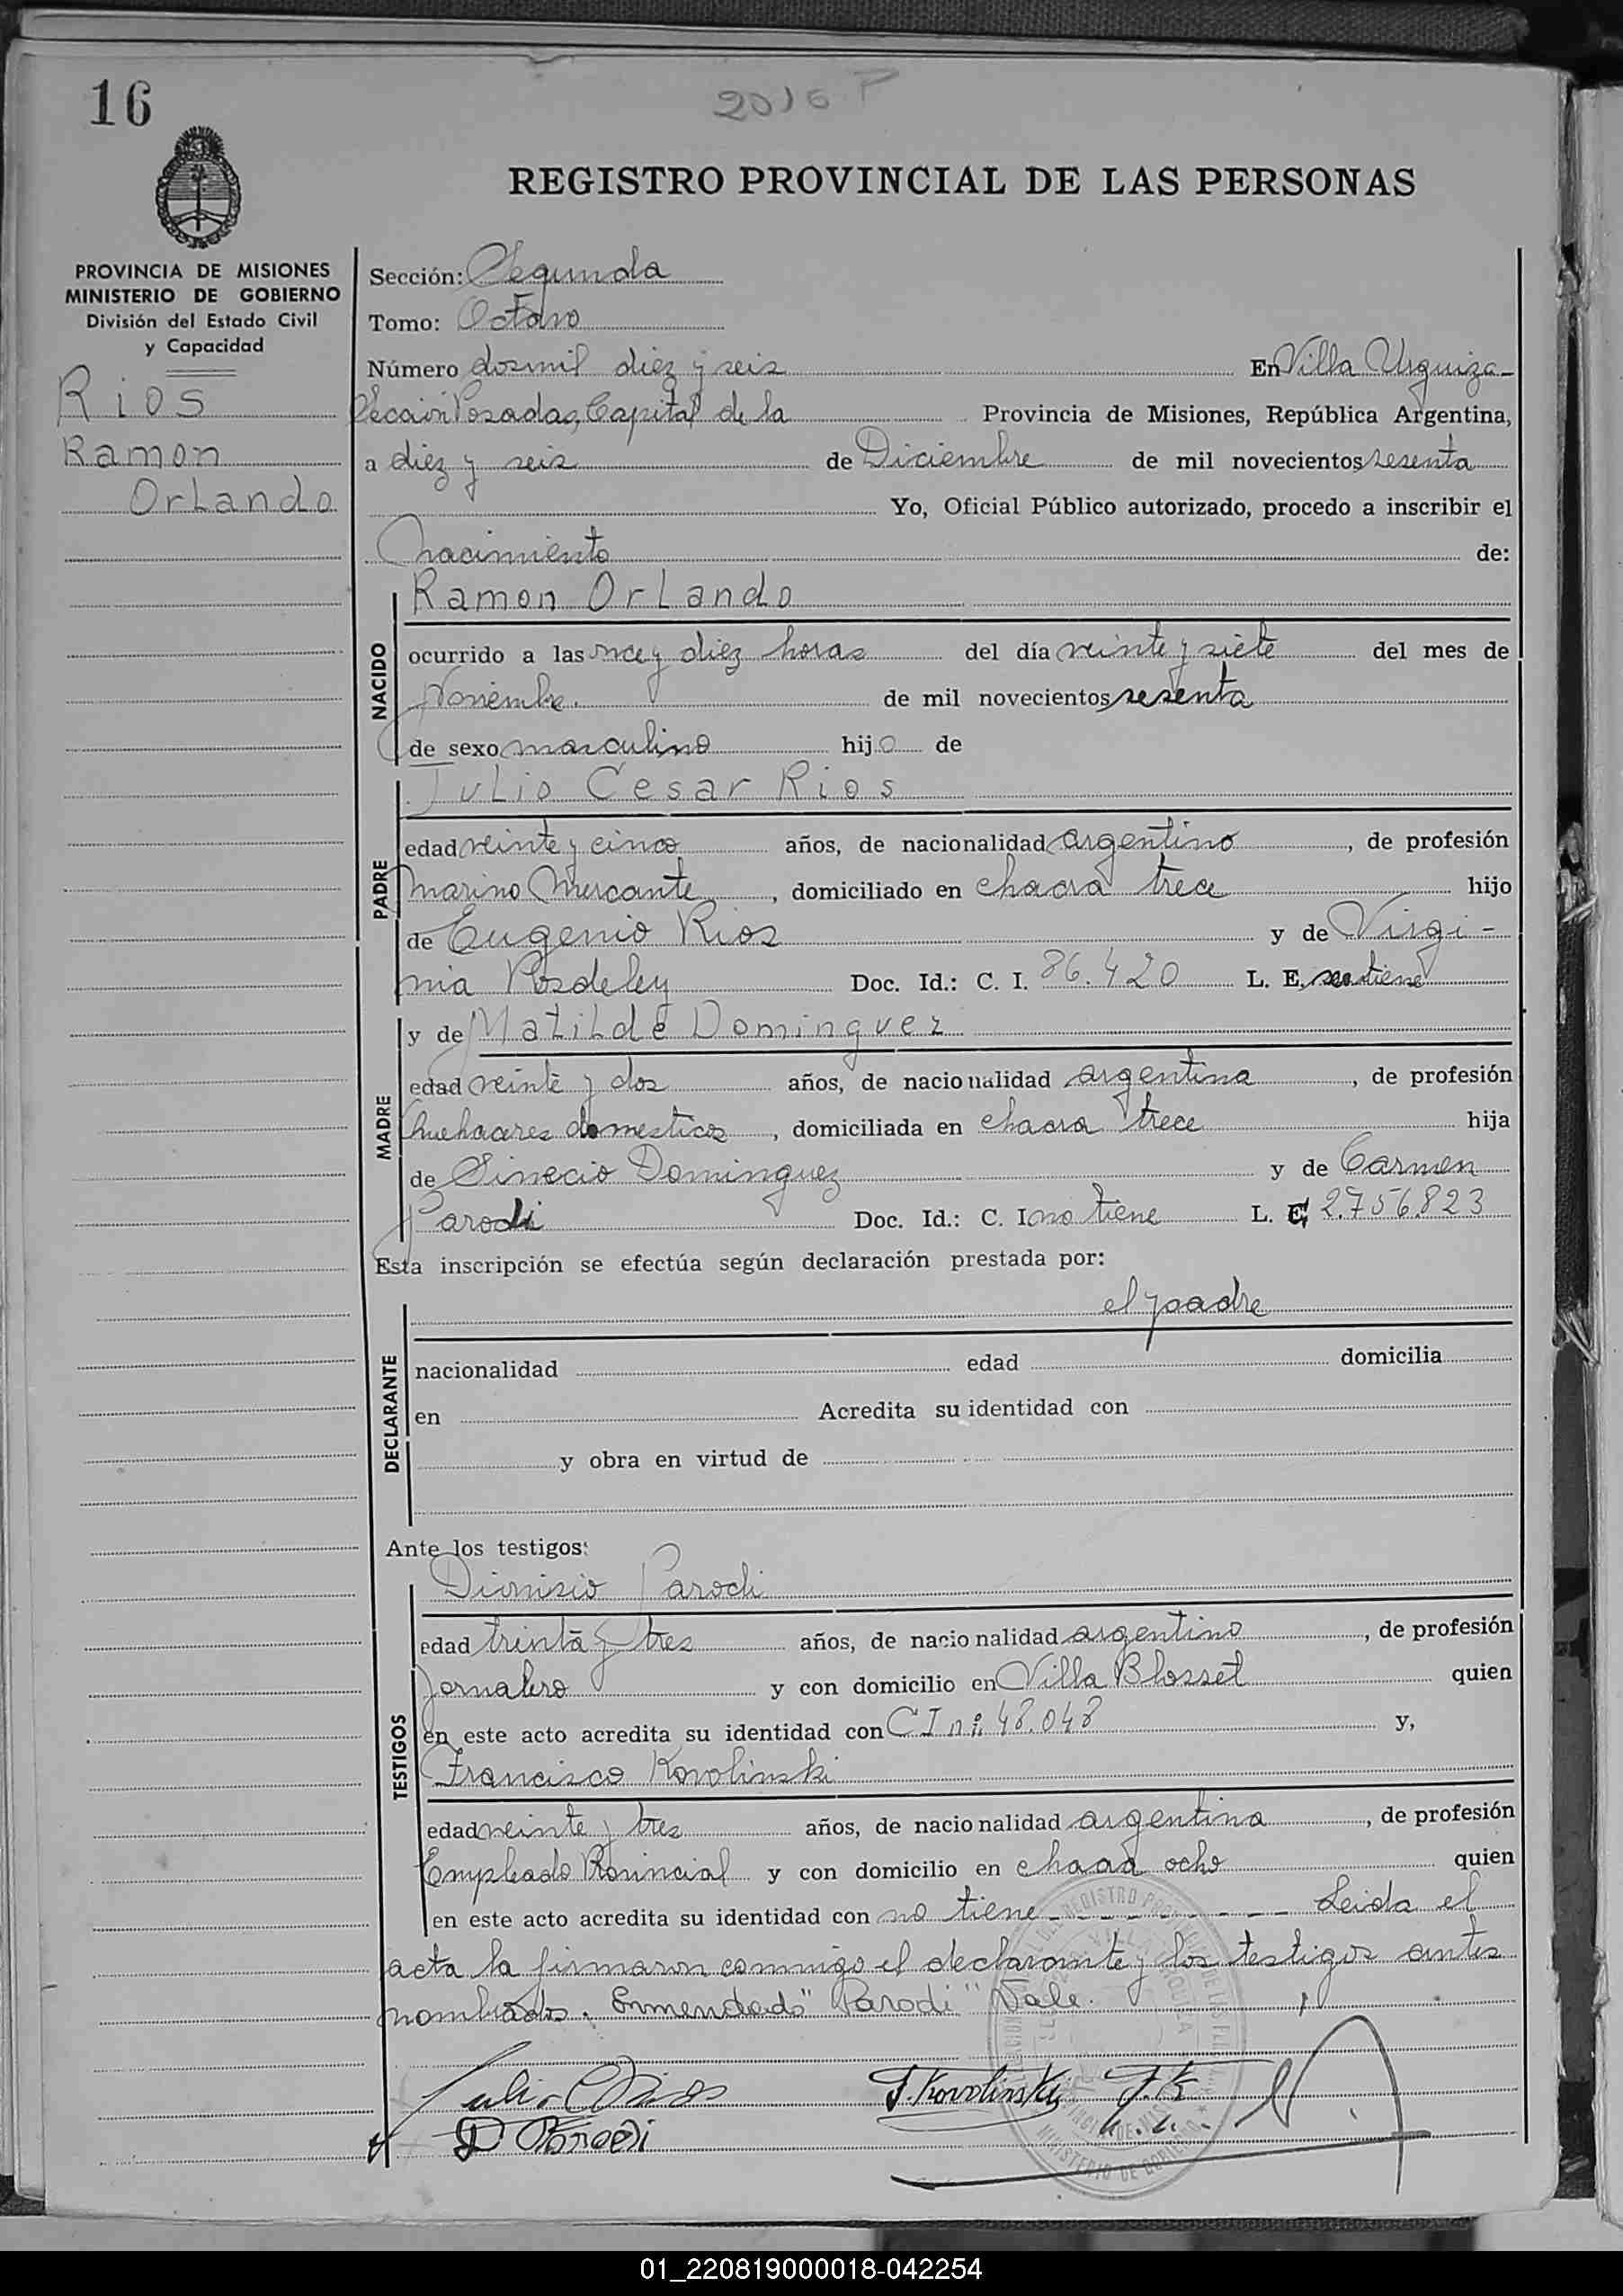 16
2016 P
REGISTRO PROVINCIAL DE LAS PERSONAS
PROVINCIA DE MISIONES
MINISTERIO DE GOBIERNO
División del Estado Civil
y Capacidad
Rios
Ramon
Orlando
Sección: Segunda
Tomo: Octavo
Número dosmil diez y seis En Villa Urquiza-
Sección Posadas, Capital de la Provincia de Misiones, República Argentina,
a diez y seis de Diciembre de mil novecientos sesenta
Yo, Oficial Público autorizado, procedo a inscribir el
Nacimiento de:
NACIDO
Ramon Orlando
ocurrido a las once y diez horas del día veinte y siete del mes de
Noviembre. de mil novecientos sesenta
de sexo masculino hijo de
PADRE
Julio Cesar Rios
edad veinte y cinco años, de nacionalidad argentino, de profesión
Marino Mercante, domiciliado en chacra trece hijo
de Eugenio Rios y de Virgi-
nia Posdeley Doc. Id.: C. I. 86.420 L. E. no tiene
MADRE
y de Matilde Dominguez
edad veinte y dos años, de nacionalidad argentina, de profesión
Quehaceres domesticos, domiciliada en chacra trece hija
de Sinecio Dominguez y de Carmen
Parodi Doc. Id.: C. I no tiene L. C, 2.756.823
Esta inscripción se efectúa según declaración prestada por:
el padre
DECLARANTE
nacionalidad edad domicilia
en Acredita su identidad con
y obra en virtud de
Ante los testigos:
TESTIGOS
Dionisio Parodi
edad trinta y tres años, de nacionalidad argentino, de profesión
Jornalero y con domicilio en Villa Blosset quien
en este acto acredita su identidad con C I nº 48.048 y,
Francisco Kovolinski
edad veinte y tres años, de nacionalidad argentina, de profesión
Empleado Provincial y con domicilio en chacra ocho quien
en este acto acredita su identidad con no tiene - - - - - - - - Leida el
acta la firmaron conmigo el declarante y los testigos antes
nombrados. Enmendado "Parodi" Vale.
Julio C Rios F. Kovolinski F. K
D Parodi
01_220819000018-042254